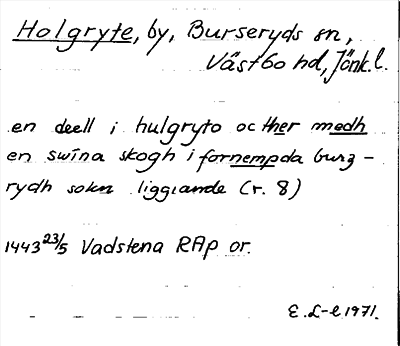 Holgryte, by, Burseryds sn,
Västbo hd, Jönk. l.
en deell i hulgryto oc ther medh
en swina skogh i fornempda burg-
rydh sokn liggiande (r. 8)
1443 23/5 Vadstena RAp or.
E. L-l 1971.